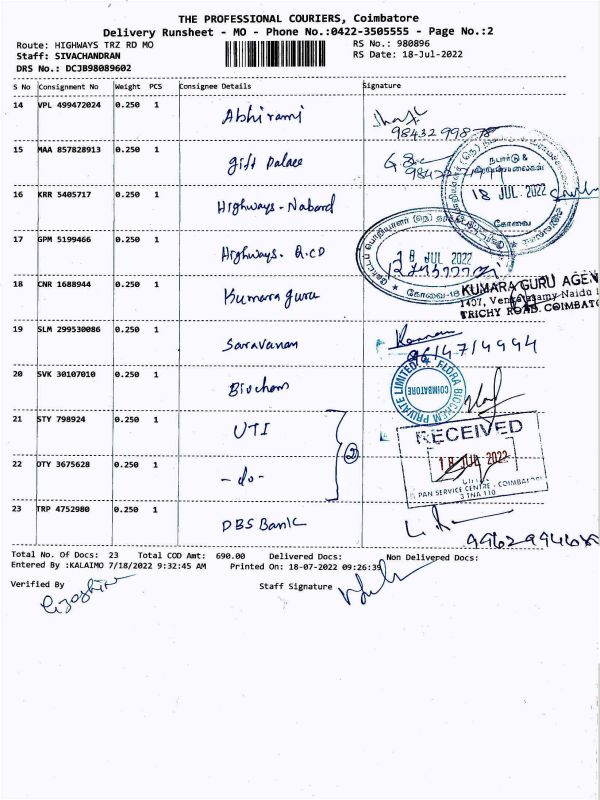 THE PROFESSIONAL COURIERS, Coimbatore
Delivery Runsheet - MO - Phone No.:0422-3505555 - Page No.:2
Route: HIGHWAYS TRZ RD MO
RS No.: 980896
Staff: SIVACHANDRAN
RS Date: 18-Jul-2022
DRS No.: DCJB98089602
S No Consignment No Weight PCS Consignee Details Signature
14 VPL 499472024 0.250 1 Abhirami
15 MAA 857828913 0.250 1 gift Palace
16 KRR 5405717 0.250 1 Highways-Nabard
17 GPM 5199466 0.250 1 Highways. Q.CD
18 CNR 1688944 0.250 1 Kumara guru
19 SLM 299530086 0.250 1 Saravanan
20 SVK 30107010 0.250 1 Biochem
21 STY 798924 0.250 1 UTI
22 OTY 3675628 0.250 1 -do-
23 TRP 4752980 0.250 1 DBS Bank
2
நபார்டு &
18 JUL 2022
கோவை
18 JUL 2022
கோவை-18
KUMARA GURU AGEN
TRICHY ROAD. COIMBATO
FLORA BIOCHEM PRIVATE LIMITED
COIMBATORE
RECEIVED
18 JUL 2022
PAN SERVICE CENTRE - COIMBATORE
Total No. Of Docs: 23 Total COD Amt: 690.00 Delivered Docs: Non Delivered Docs:
Entered By :KALAIMO 7/18/2022 9:32:45 AM Printed On: 18-07-2022 09:26:39
Verified By
Staff Signature